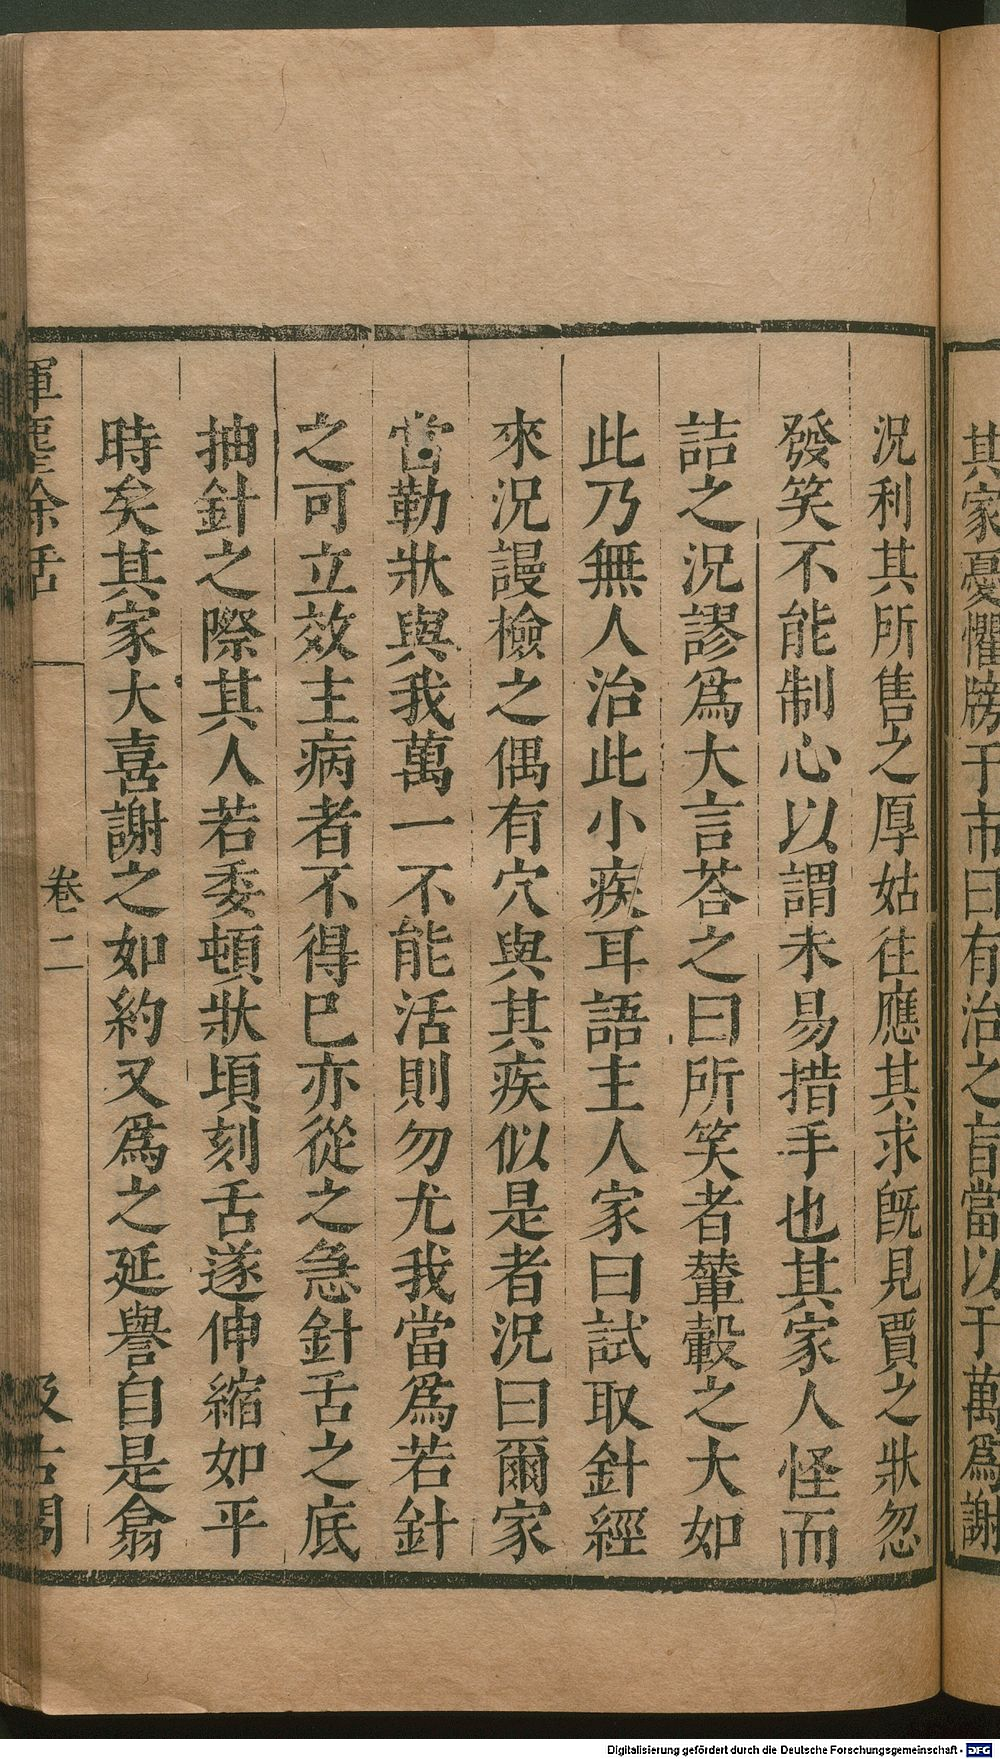 其家憂懼牓于市曰有治之者當以千萬爲謝
況利其所售之厚姑往應其求旣見賈之狀忽
發笑不能制心以謂未易措手也其家人怪而
詰之況謬爲大言荅之曰所笑者輦轂之大如
此乃無人治此小疾耳語主人家曰試取針經
來況謾檢之偶有穴與其疾似是者況曰爾家
當勒狀與我萬一不能活則勿尤我當爲若針
之可立效主病者不得巳亦從之急針舌之底
抽針之際其人若委頓狀頃刻舌遂伸縮如平
時矣其家大喜謝之如約又爲之延譽自是翕
揮麈餘話
卷二
汲古閣
Digitalisierung gefördert durch die Deutsche Forschungsgemeinschaft - DFG